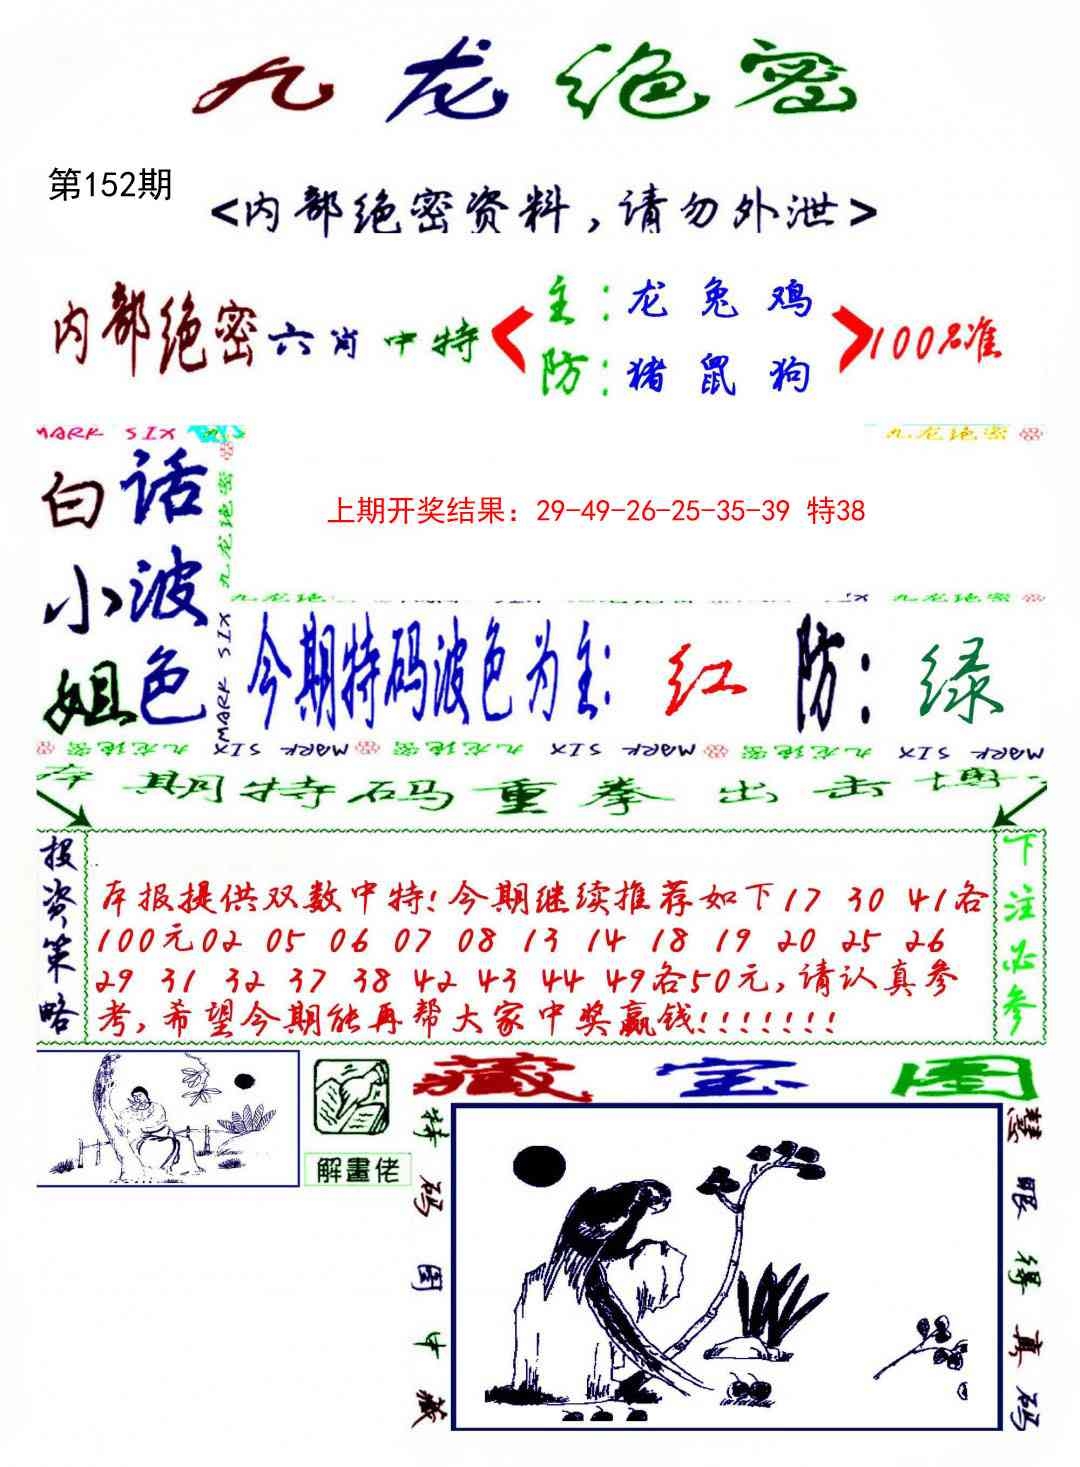 九龙绝密
第152期
<内部绝密资料,请勿外泄>
内部绝密六肖中特
主:龙兔鸡
防:猪鼠狗
100%准
MARK SIX
九龙绝密
白小姐
话波色
九龙绝密
上期开奖结果：29-49-26-25-35-39 特38
MARK SIX
今期特码波色为主:红 防:绿
九龙绝密 MARK SIX MARK SIX 九龙绝密 九龙绝密 MARK SIX MARK SIX 九龙绝密 九龙绝密 MARK SIX
本期特码重拳出击博
投资策略
本报提供双数中特!今期继续推荐如下17 30 41各
100元02 05 06 07 08 13 14 18 19 20 25 26
29 31 32 37 38 42 43 44 49各50元,请认真参
考,希望今期能再帮大家中奖赢钱!!!!!!!
下注必参
藏宝图
解畫佬
特码图中藏
慧眼得真码